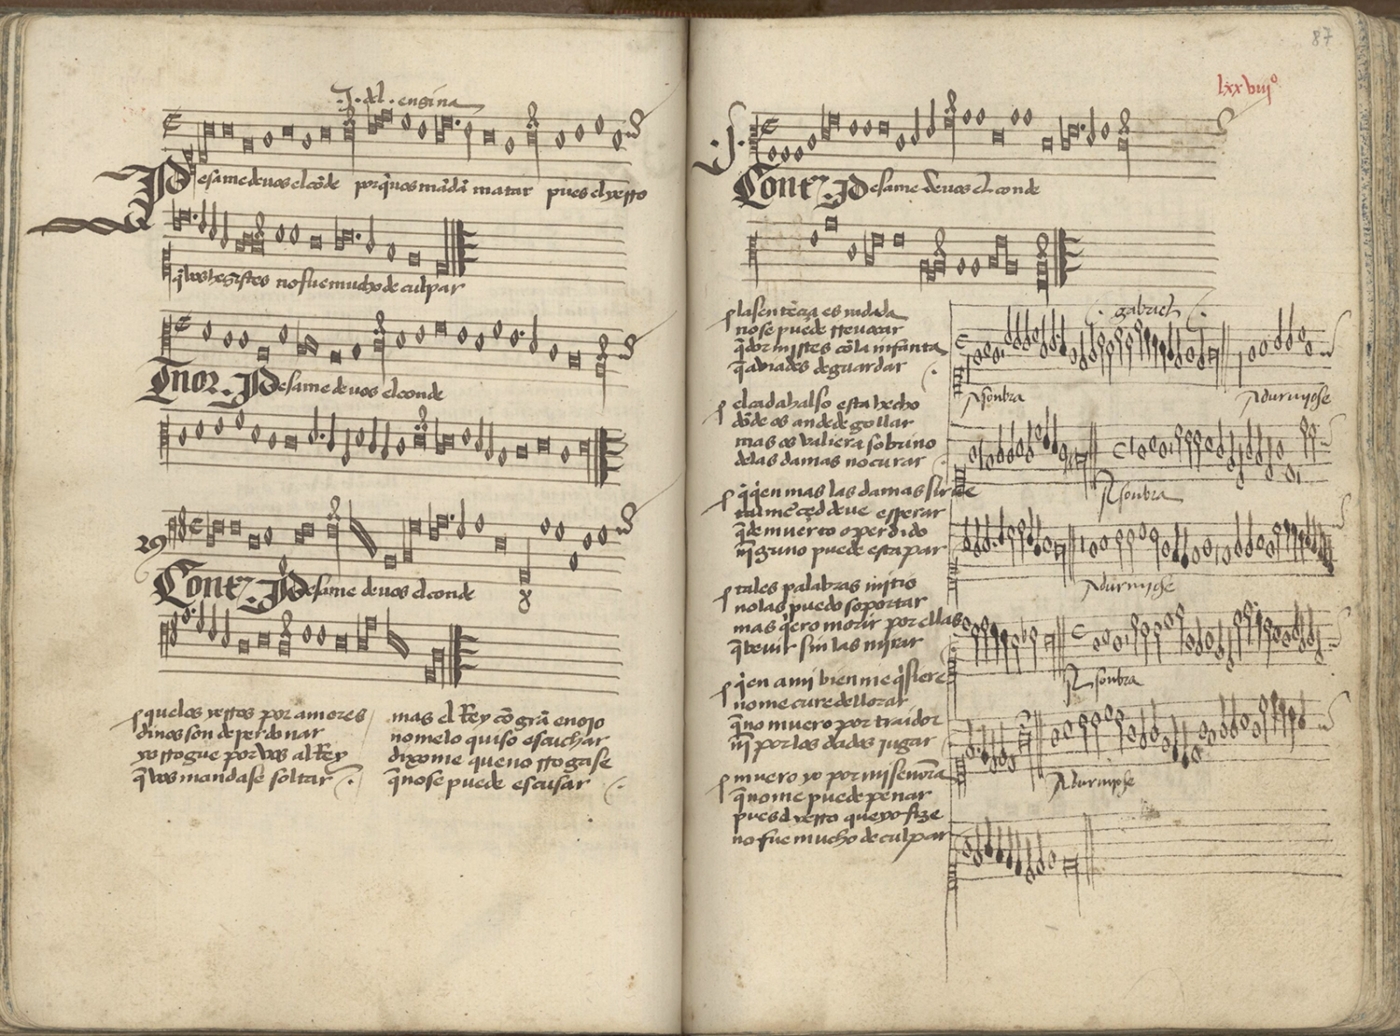 .J. del. ensina
Pesame de uos el cōde porq̄ uos mādā matar pues el yerro
q̄ vos hezistes no fue mucho de culpar
Tenor. Pesame de uos el conde
Contr. Pesame de uos el conde
que los yerros por amores
dinos son de perdonar
yo rrogue por vos al Rey
q̄ vos mandase soltar
mas el Rey cō grā enojo
no me lo quiso escuchar
dixome que no rrogase
q̄ no se puede escusar
87
lxxviijº
Contr. Pesame de uos el conde
la sentēçia es ya dada
no se puede rreuocar
q̄ dormistes cō la infanta
q̄ aviades de guardar
el cadahalso esta hecho
dōde os an de degollar
mas os valiera sobrino
de las damas no curar
q̄ q̄en mas las damas sirue
tal merçed deve esperar
q̄ de muerto o perdido
nīguno puede escapar
tales palabras mi tio
no las puedo soportar
mas q̄ero morir por ellas
q̄ beuir sin las mirar
q̄en a mi bien me q̄siere
no me cure de llorar
q̄ no muero por traidor
nī por los dados jugar
muero yo por mi señora
q̄ no me puede penar
pues el yerro que yo fize
no fue mucho de culpar
gabriel
A sonbra
Adurmyose
A sonbra
Adurmyose
A sonbra
Adurmyose